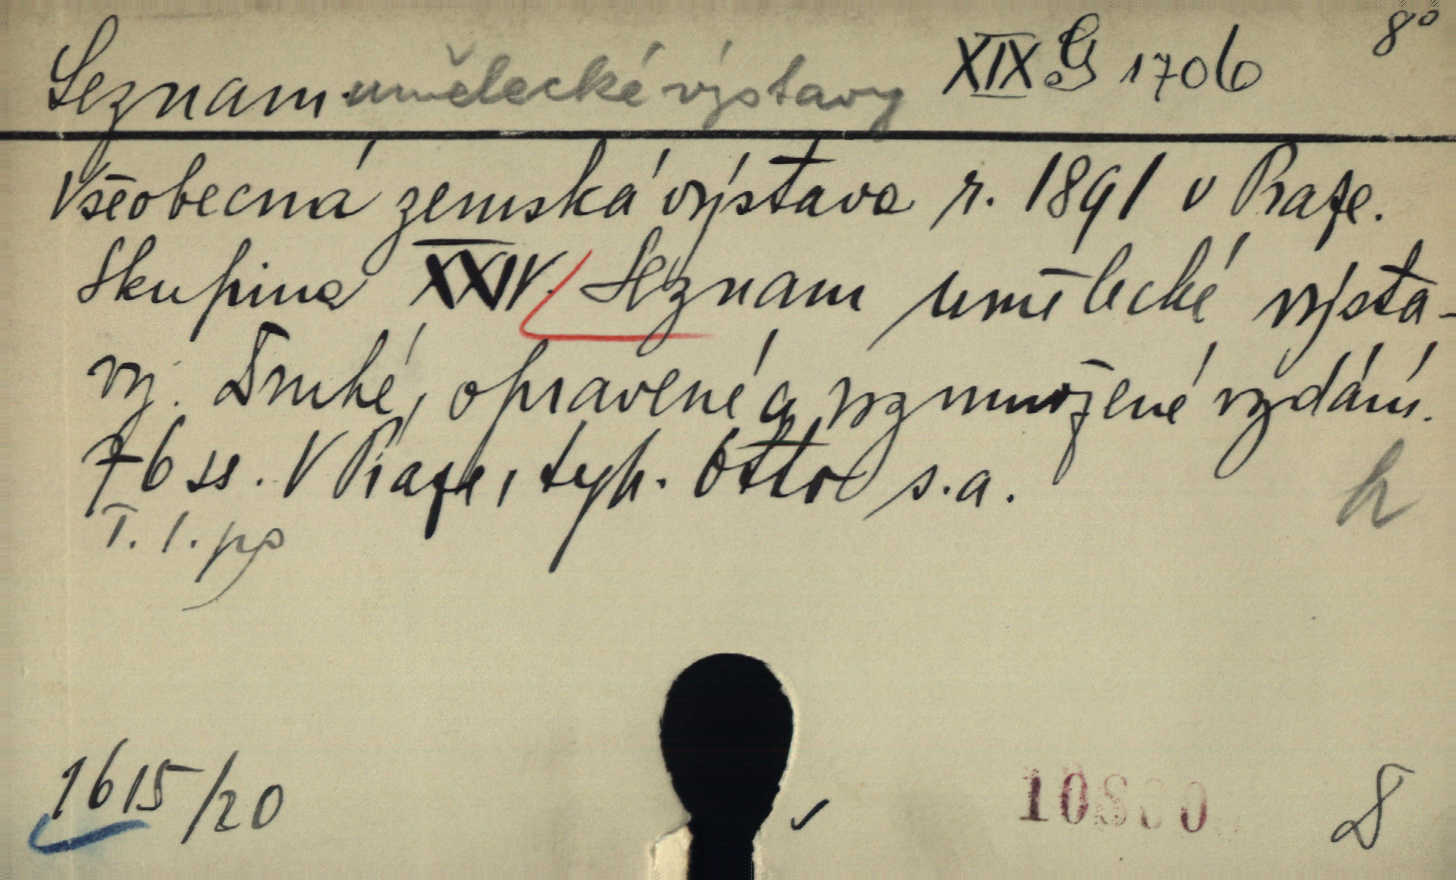 Seznam umělecké výstavy XIX G 1706 8°
Všeobecná zemská výstava r. 1891 v Praze.
Skupina XXIV. Seznam umělecké výsta-
vy. Druhé, opravené a rozmnožené vydání.
76 ss. V Praze, typ. Otto s.a.
T. 1. po
h
1615/20